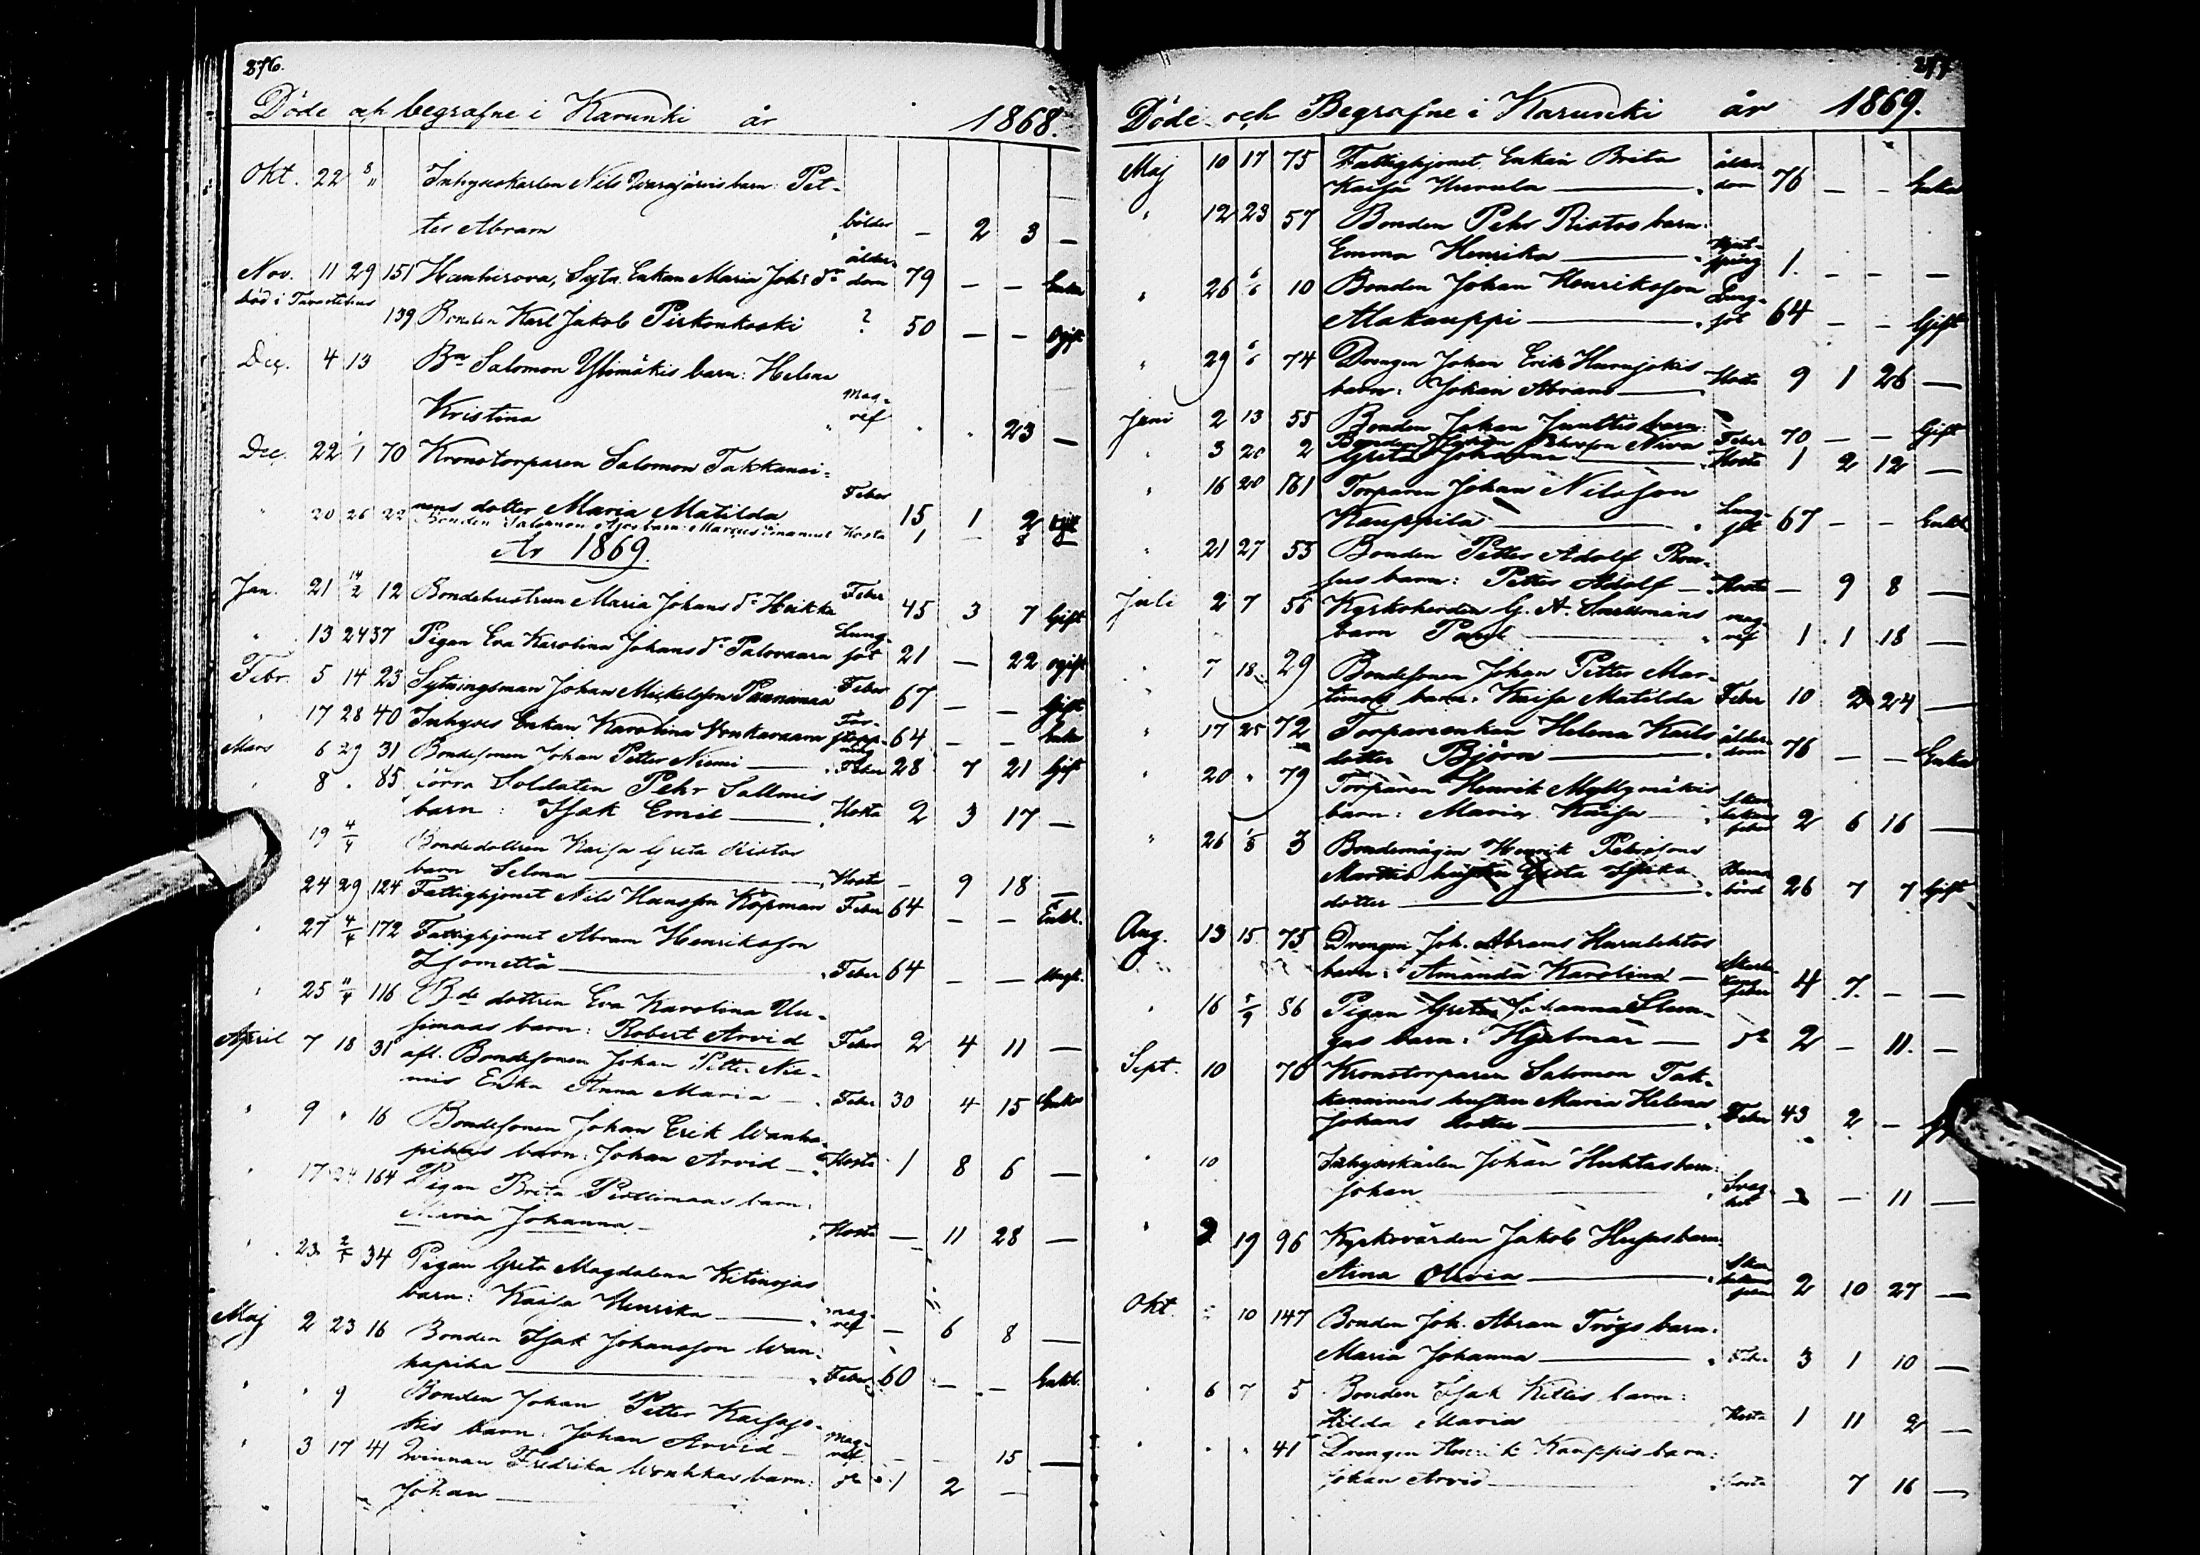 276.
Döde och begrafne i Karunki år 1868.
Okt. 22 8/11 Inhyseskarlen Nils barn: Pet-
ter Abram bölder — 2 3 —
ålder-
Nov. 11 29 151 Sytn. Enkan Maria Johs dr dom 79 — — Enka
död i Tavastehus
139 Bonden Karl Jakob Pirkonkoski ? 50 — — ogift
Dec. 4 13 Bn Salomon Ylimäkis barn: Helena
Kristina mag-
ref . . 23 —
Dec. 22 1/1 70 Kronotorparen Salomon Takkinai-
nens dotter Maria Matilda Feber 15 1 2 ogift
" 20 26 22 Bonden Salomon barn: Marcus Emanuel Hosta 1 — 8 —
År 1869.
Jan. 21 14/2 12 Bondehustrun Maria Johans dr Heikka Feber 45 3 7 Gift
" 13 24 37 Pigan Eva Karolina Johans dr Palovaara Lung-
sot 21 — 22 ogift
Febr. 5 14 23 Sytningsman Johan Mickelsson Feber 67 — — Gift
" 17 28 40 Inhyses Enkan Karolina Vonkavaara För-
stopp-
ning 64 — — Enka
Mars 6 29 31 Bondesonen Johan Petter Niemi — Feber 28 7 21 Gift
" 8 . 85 Förra Soldaten Pehr Sallmis
barn: Isak Emil — Hosta 2 3 17 —
19 4/4 Bondedottren Kaisa Greta Ristos
barn Selma — Hosta — 9 18 —
24 29 124 Fattighjonet Nils Hansson Köpman Feber 64 — — Enkl.
" 27 4/4 172 Fattighjonet Abram Henriksson
— Feber 64 — —
" 25 11/4 116 Bde dottren Eva Karolina Uu-
simaas barn: Robert Arvid Feber 2 4 11 —
April 7 18 31 afl. Bondesonen Johan Petter Nie-
mis Enka Anna Maria — Feber 30 4 15 Enka
" 9 " 16 Bondesonen Johan Erik Wanha-
pihas barn: Johan Arvid — Hosta 1 8 6 —
" 17 24 164 Pigan Brita Perttimaas barn:
Maria Johanna — Hosta — 11 28 —
" 23 2/5 34 Pigan Greta Magdalena Kitinojas
barn: Kaisa Henrika — mag-
ref — 6 8 —
Maj 2 23 16 Bonden Isak Johansson Wan-
hapiha — Feber 60 — — Enkl.
" " 9 Bonden Johan Petter Kaisajo-
kis barn: Johan Arvid — mag-
ref — — 15 —
" 3 17 41 Qvinnan Fredrika barn:
Johan — do 1 2 —
277
Döde och Begrafne i Karunki år 1869.
Maj 10 17 75 Fattighjonet Enkan Brita ålder-
Kaisa — dom 76 — — Enka
" 12 23 57 Bonden Pehr Ristos barn:
Emma Henrika — 1 — — —
" 26 6/6 10 Bonden Johan Henriksson Lung-
Alakauppi — sot 64 — — Gift
" 29 6/6 74 Drengen Johan Erik
barn: Johan Abram — Hosta 9 1 26 —
Juni 2 13 55 Bonden Johan Junttis barn:
Bonden Niva Feber 70 — — Gift
" 3 20 2 Greta Johanna — Hosta 1 2 12 —
" 16 20 161 Torparen Johan Nilsson
Kauppila — Lung-
sot 67 — — Enkl.
" 21 27 53 Bonden Petter Adolf
barn: Petter Adolf — Hosta — 9 8 —
Juli 2 7 56 Kyrkoherden G. A. Snellmans mag-
barn Paul — ref 1 1 18 —
" 7 18 29 Bondesonen Johan Petter Mar-
timos barn: Kaisa Matilda Feber 10 2 24 —
" 17 25 72 Torparenkan Helena Karls ålder-
dotter Björn — dom 76 — — Enka
" 20 " 79 Torparen Henrik Myllymäkis
barn: Maria Kaisa — Skar-
lakans
feber 2 6 16 —
" 26 1/8 3 Bondemågen Henrik Petersons
hustru Greta
dotter — 26 7 7 Gift
Aug. 13 15 75 Drengen Joh. Abrams Harulehtos
barn: Amanda Karolina — Skarla-
kans
feber 4 7 — —
" 16 5/9 86 Pigan Greta Johanna Slun-
gas barn: Hjalmar — do 2 — 11 —
Sept. 10 70 Kronotorparen Salomon Tak-
kinainens hustru Maria Helena
Johans dotter — Feber 43 2 —
" 10 Inhyseskarlen Johan Huhtas barn:
Johan — Svag-
het — — 11 —
" 2 19 96 Kyrkovärden Jakob barn
Stina Olivia — Skar-
lakans
feber 2 10 27 —
Okt. 10 147 Bonden Joh. Abram barn:
Maria Johanna — Feber 3 1 10 —
" 6 7 5 Bonden Isak barn:
Hilda Maria Hosta 1 11 2 —
" " " 41 Drengen Henrik Kauppis barn:
Johan Arvid — Hosta 7 16 —